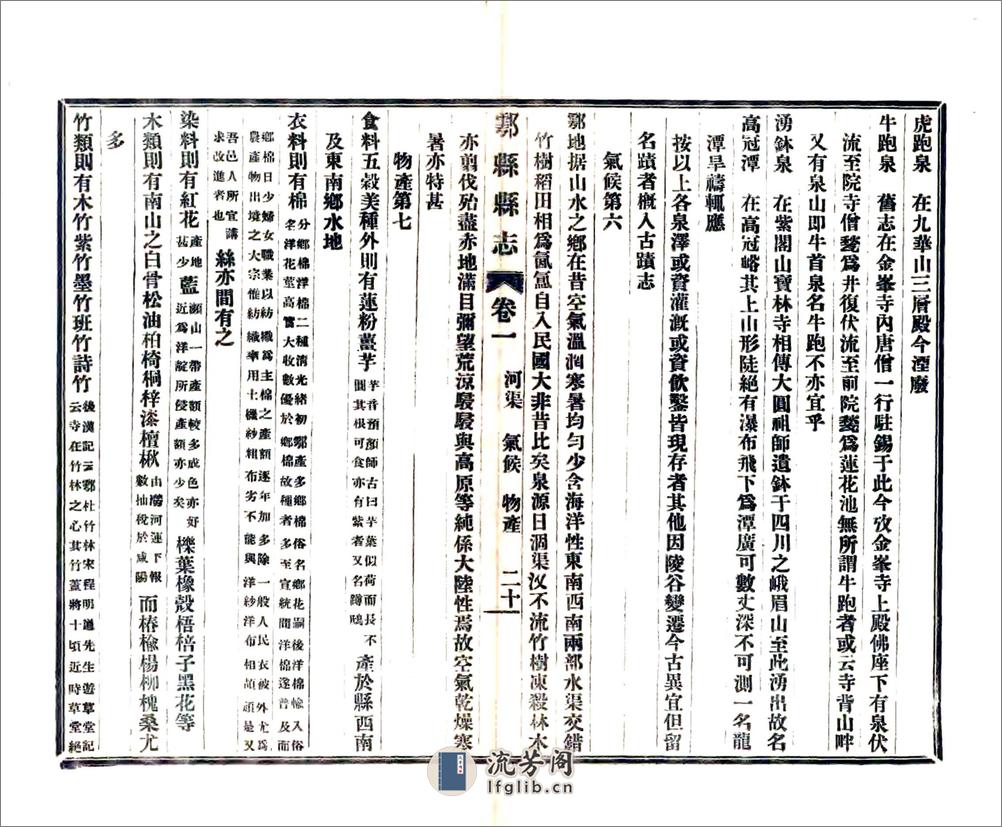 虎跑泉　在九華山三層殿今湮廢
牛跑泉　舊志在金峯寺內唐僧一行駐錫于此今攷金峯寺上殿佛座下有泉伏
流至院寺僧甃為井復伏流至前院甃為蓮花池無所謂牛跑者或云寺背山畔
又有泉山即牛首泉名牛跑不亦宜乎
湧鉢泉　在紫閣山寶林寺相傳大圓祖師遺鉢于四川之峨眉山至此湧出故名
高冠潭　在高冠峪其上山形陡絕有瀑布飛下為潭廣可數丈深不可測一名龍
潭旱禱輒應
按以上各泉澤或資灌溉或資飲鑿皆現存者其他因陵谷變遷今古異宜但留
名蹟者概入古蹟志
氣候第六
鄠地据山水之鄉在昔空氣溫潤寒暑均勻少含海洋性東南西南兩部水渠交錯
竹樹稻田相為氤氳自入民國大非昔比矣泉源日涸渠汊不流竹樹凍殺林木
亦翦伐殆盡赤地滿目彌望荒涼駸駸與高原等純係大陸性焉故空氣乾燥寒
暑亦特甚
物產第七
鄠縣縣志
卷一
河渠　氣候　物產
二十
食料五穀美種外則有蓮粉薑芋芋音預顏師古曰芋葉似荷而長不
圓其根可食亦有紫者又名蹲鴟產於縣西南
及東南鄉水地
衣料則有棉分鄉棉洋棉二種清光緒初鄠產多鄉棉俗名鄉花嗣後洋棉輸入俗
名洋花莖高實大收數優於鄉棉故種者多至宣統間洋棉遂普及而
鄉棉日少婦女職業以紡織為主棉之產額逐年加多除一般人民衣被外尤為
農產物出境之大宗惟紡織率用土機紗粗布劣不能與洋紗洋布相頡頏是又
吾邑人所宜講
求改進者也絲亦間有之
染料則有紅花產地瀕山一帶產額較多成色亦好
甚少藍近為洋靛所侵產額亦少矣櫟葉橡殼梧棓子黑花等
木類則有南山之白骨松油柏椅桐梓漆檀楸由澇河運下報
數抽稅於咸陽而椿楡楊柳槐桑尤
多
竹類則有木竹紫竹墨竹班竹詩竹後漢記云鄠杜竹林宋程明道先生遊草堂記
云寺在竹林之心其竹蓋將十頃近時草堂絕
流芳阁
lfglib.cn